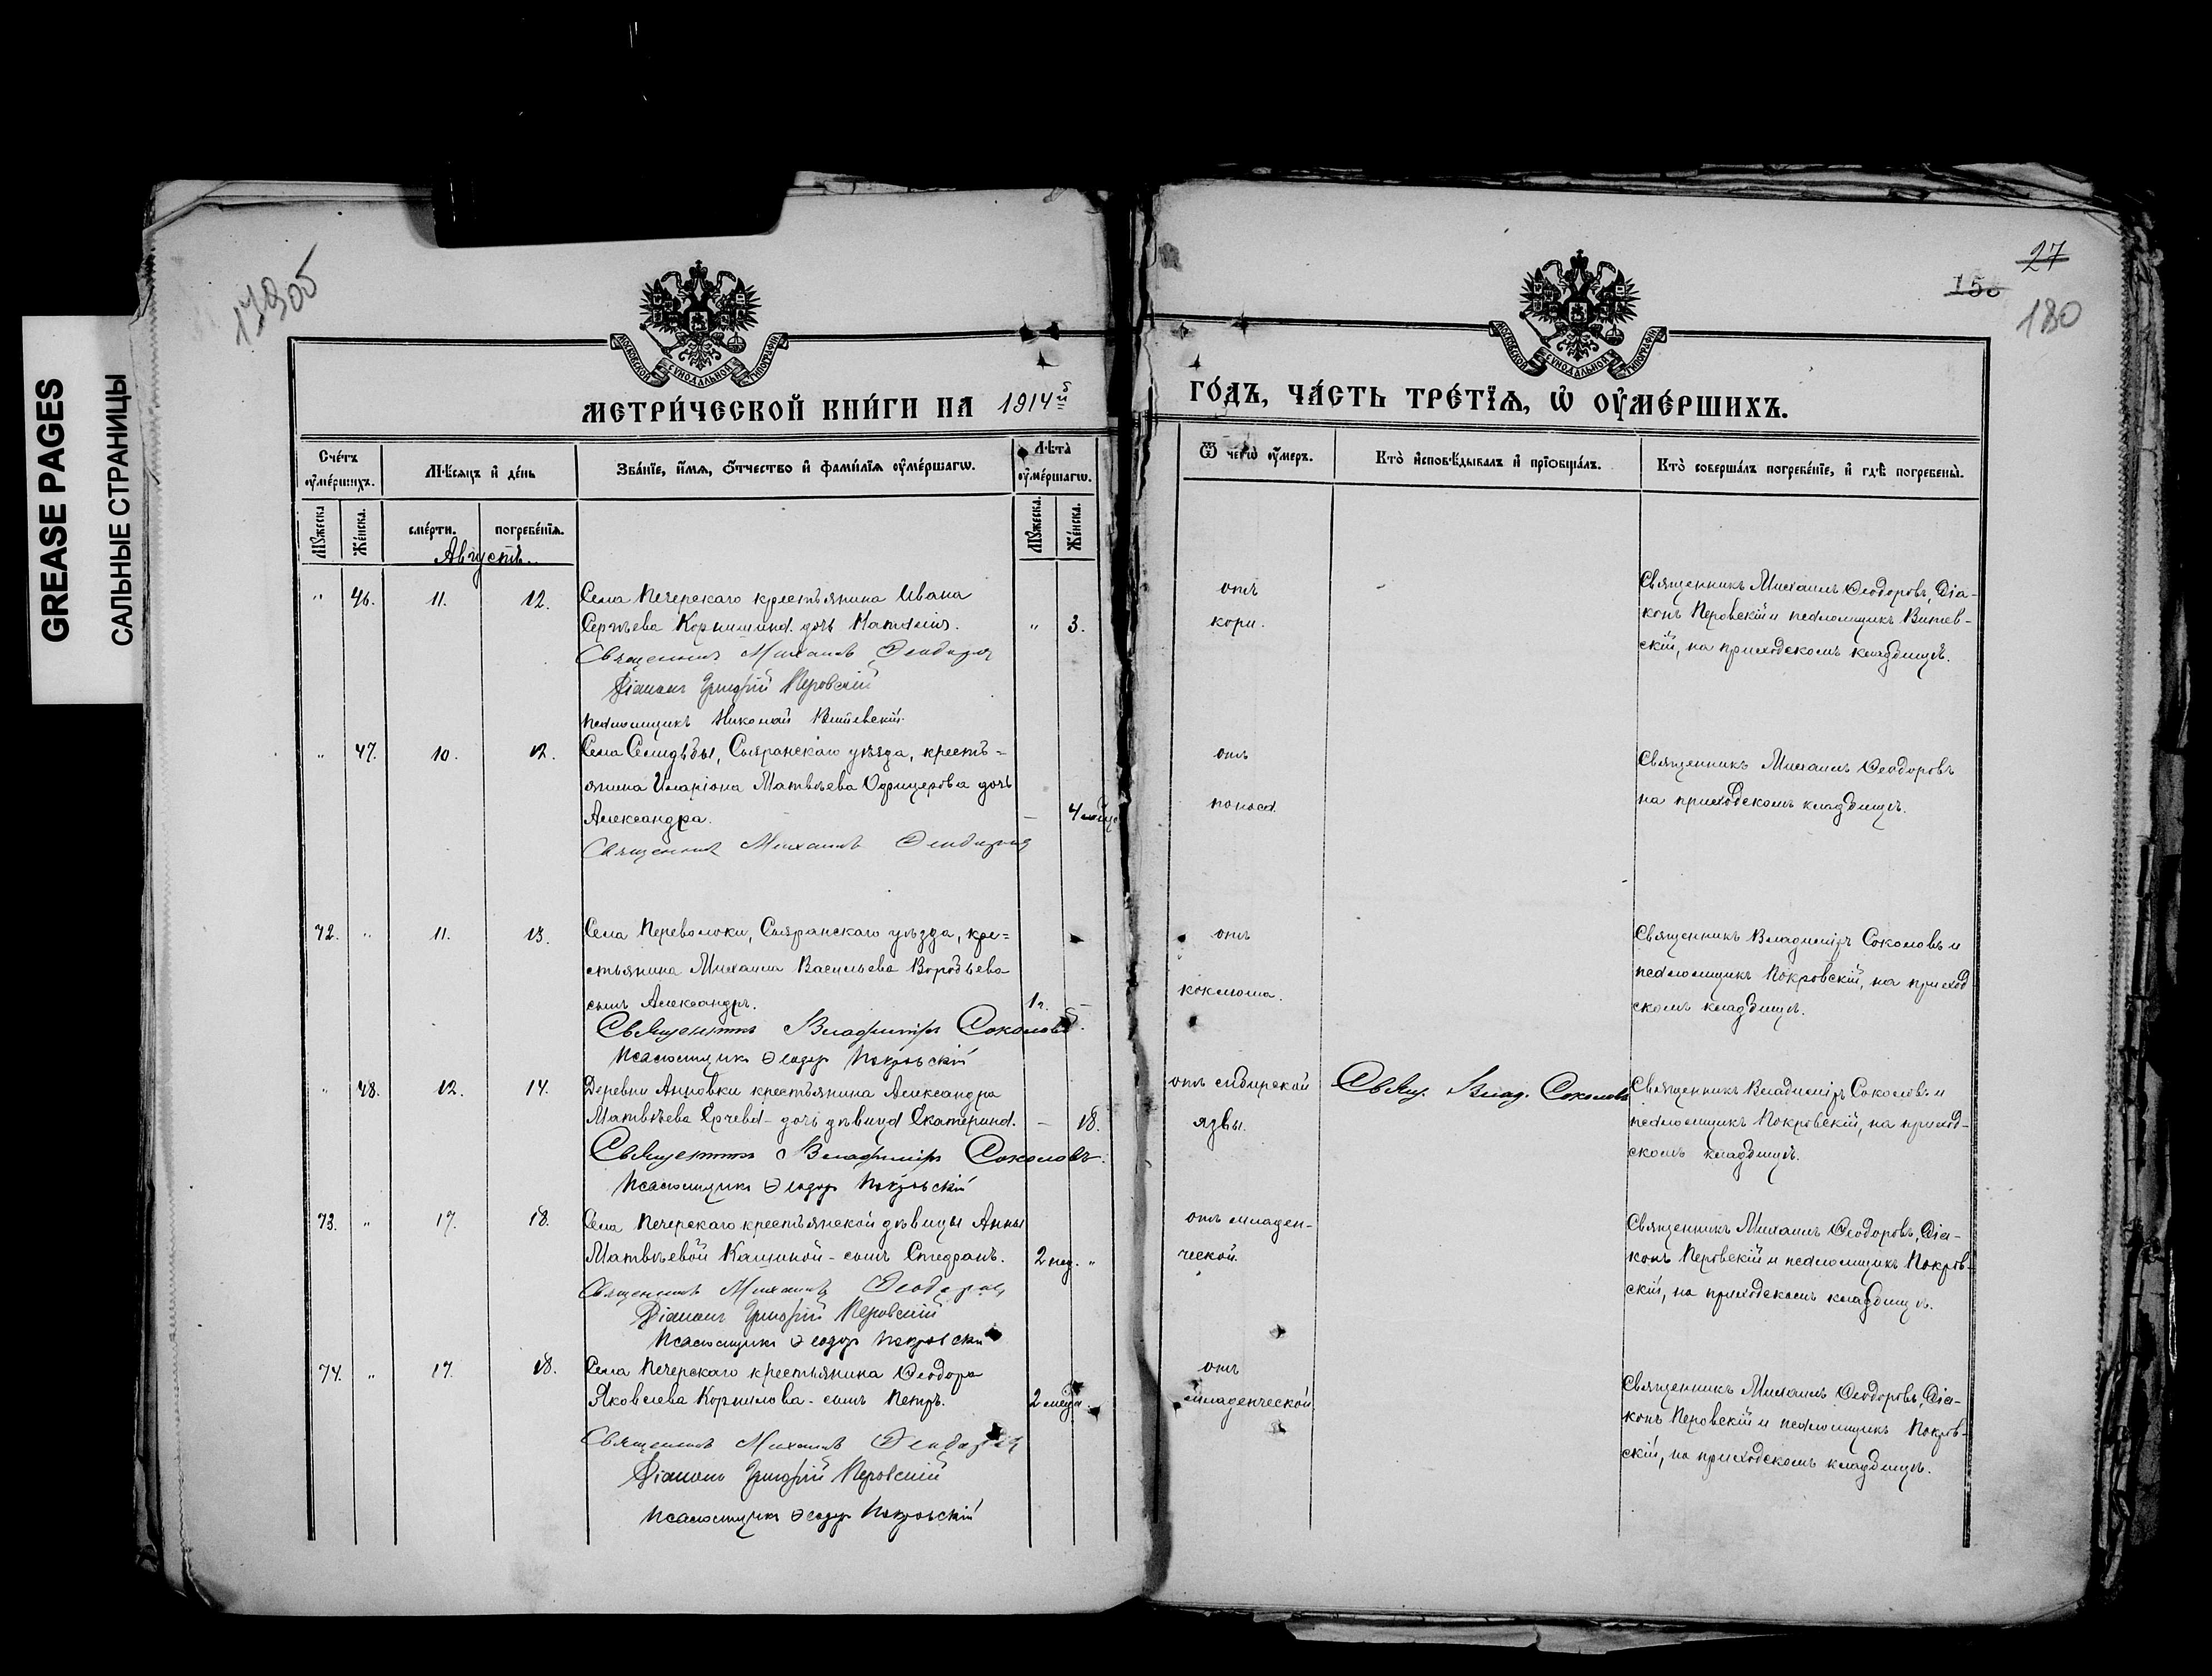 GREASE PAGES
САЛЬНЫЕ СТРАНИЦЫ
27
180
МОСКОВСКОЙ СУНОДАЛЬНОЙ ТИПОГРАФІИ
МОСКОВСКОЙ СУНОДАЛЬНОЙ ТИПОГРАФІИ
МЕТРИ́ЧЕСКОЙ КНИ́ГИ НА 1914й
ГО́ДЪ, ЧА́СТЬ ТРЕ́ТІѦ, Ѡ҆ ОУ҆МЕ́РШИХЪ.
Сче́тъ оу҆ме́ршихъ.
Мѣсѧцъ и҆ де́нь
Зва́нїе, и҆́мѧ, о҆́тчество и҆ фамѝлїѧ оу҆ме́ршагѡ.
Лѣта̀ оу҆ме́ршагѡ.
Ѿ чегѡ̀ оу҆́меръ.
Кто̀ и҆сповѣ́дывалъ и҆ прїѡбща́лъ.
Кто̀ соверша́лъ погребе́нїе, и҆ гдѣ̀ погребены̀.
Мꙋжеска
Же́нска.
сме́рти.
погребе́нїѧ.
Мꙋжеска.
Же́нска.
Августъ.
" 46. 11. 12. Села Печерскаго крестьянина Ивана
Сергѣева Корнилина дочь Наталія. " 3.
Священникъ Михаилъ Ѳеодоровъ
Діаконъ Григорій Перовскій
псаломщикъ Николай Витевскій.
отъ
кори.
Священникъ Михаилъ Ѳеодоровъ, Діа-
конъ Перовскій и псаломщикъ Витев-
скій, на приходскомъ кладбищѣ.
" 47. 10. 12. Села Селидьбы, Сызранскаго уѣзда, кресть=
янина Иларіона Матвѣева Офицерова дочь
Александра. – 4
Священникъ Михаилъ Ѳеодоровъ
отъ
поноса.
Священникъ Михаилъ Ѳеодоровъ
на приходскомъ кладбищѣ.
72. " 11. 13. Села Переволоки, Сызранскаго уѣзда, кре=
стьянина Михаила Васильева Воробьева
сынъ Александръ. 1г. –
Священникъ Владиміръ Соколовъ.
Псаломщикъ Ѳеодоръ Покровскій
отъ
коклюша.
Священникъ Владиміръ Соколовъ и
псаломщикъ Покровскій, на приход-
скомъ кладбищѣ.
" 48. 12. 14. Деревни Анновки крестьянина Александра
Матвѣева дочь дѣвица Екатерина. – 18.
Священникъ Владиміръ Соколовъ.
Псаломщикъ Ѳеодоръ Покровскій
отъ сибирской
язвы.
Свящ. Влад. Соколовъ
Священникъ Владиміръ Соколовъ и
псаломщикъ Покровскій, на приход-
скомъ кладбищѣ.
73. " 17. 18. Села Печерскаго крестьянской дѣвицы Анны
Матвѣевой Калининой - сынъ Стефанъ. 2 нед. "
Священникъ Михаилъ Ѳеодоровъ
Діаконъ Григорій Перовскій
Псаломщикъ Ѳеодоръ Покровскій
отъ младен-
ческой.
Священникъ Михаилъ Ѳеодоровъ, Діа-
конъ Перовскій и псаломщикъ Покров-
скій, на приходскомъ кладбищѣ.
74. " 17. 18. Села Печерскаго крестьянина Ѳеодора
Яковлева Корнилова - сынъ Петръ. 2
Священникъ Михаилъ Ѳеодоровъ
Діаконъ Григорій Перовскій
Псаломщикъ Ѳеодоръ Покровскій
отъ
младенческой
Священникъ Михаилъ Ѳеодоровъ, Діа-
конъ Перовскій и псаломщикъ Покров-
скій, на приходскомъ кладбищѣ.